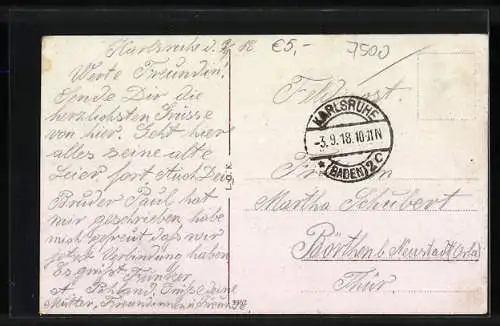 Karlsruhe d. 2/9 18 €5,- 7500
Werte Freundin!
Sende Dir die
herzlichsten Grüsse
von hier. Geht hier
alles seine alte
Leier fort. Auch Dein
Bruder Paul hat
mir geschrieben, habe
mich gefreut daß wir
jetzt Verbindung haben
Es grüßt Funker
A. Pohland, Grüße Deine
Mutter, Freundinnen u. Freunde
Feldpost.
KARLSRUHE
-3.9.18.10-11N
* (BADEN) 2c
Martha Schubert
Börthen b. Neustadt (Orla)
Thür.